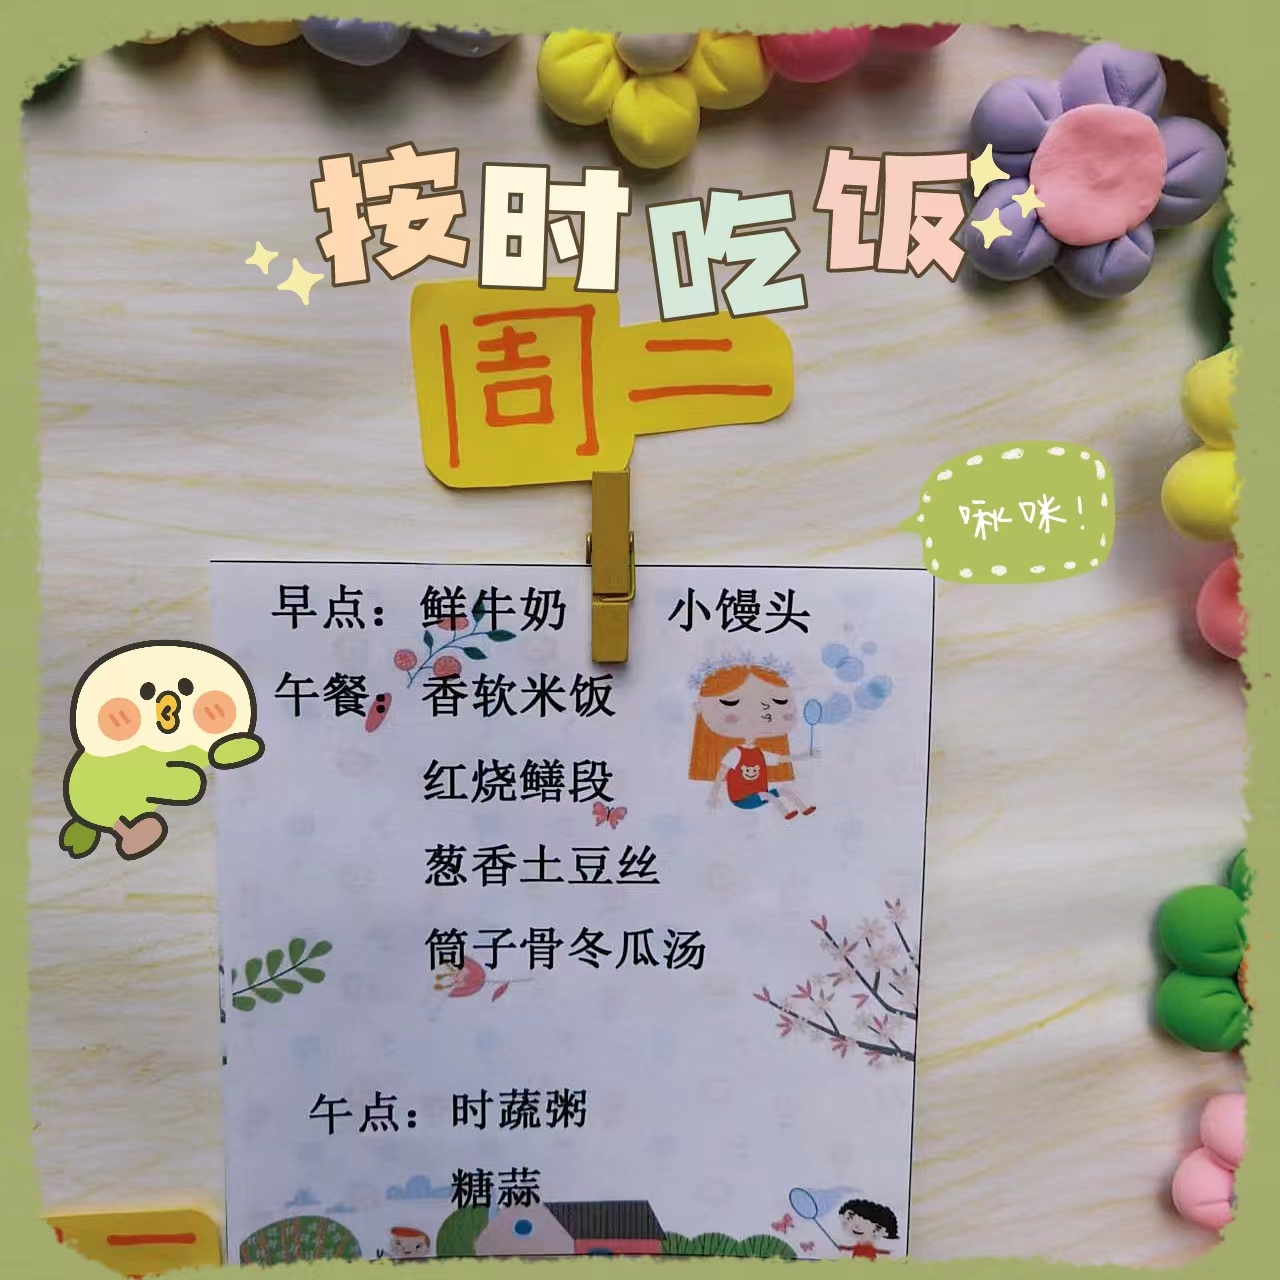 按时吃饭
周二
啾咪！
早点：鲜牛奶 小馒头
午餐：香软米饭
红烧鳝段
葱香土豆丝
筒子骨冬瓜汤
午点：时蔬粥
糖蒜
一